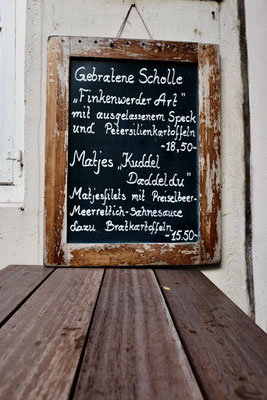 Gebratene Scholle
„Finkenwerder Art"
mit ausgelassenem Speck
und Petersilienkartoffeln
~18,50~
Matjes „Kuddel
Daddeldu"
Matjesfilets mit Preiselbeer-
Meerrettich-Sahnesauce
dazu Bratkartoffeln
~15.50~